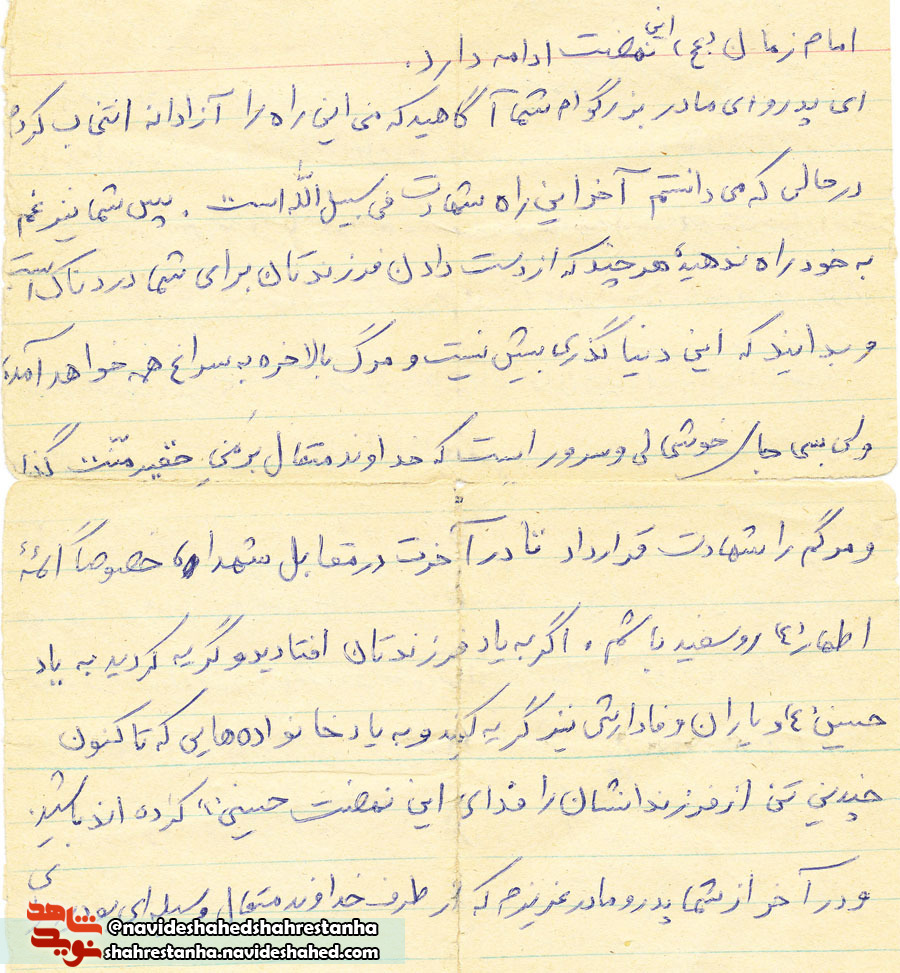 امام زمان (عج) این نهضت ادامه دارد.
ای پدر و ای مادر بزرگوارم شما آگاهید که من این راه را آزادانه انتخاب کردم
در حالی که می دانستم آخر این راه شهادت فی سبیل الله است . پس شما نیز غم
به خود راه ندهید هر چند که از دست دادن فرزندتان برای شما دردناک است
و بدانید که این دنیا گذری بیش نیست و مرگ بالاخره به سراغ همه خواهد آمد
ولی بسی جای خوشحالی و سرور است که خداوند متعال بر من حقیر منّت
و مرگم را شهادت قرار داد تا در آخرت در مقابل شهدا خصوصاً ائمهٔ
اطهار (ع) روسفید باشم . اگر به یاد فرزندتان افتادید و گریه کردید به یاد
حسین (ع) و یاران وفادارش نیز گریه کنید و به یاد خانواده هایی که تا کنون
چندین تن از فرزندانشان را فدای این نهضت حسینی کرده اند باشید
و در آخر از شما پدر و مادر عزیزم که از طرف خداوند متعال وسیله ای بودید
شاهد
نوید
@navideshahedshahrestanha
shahrestanha.navideshahed.com